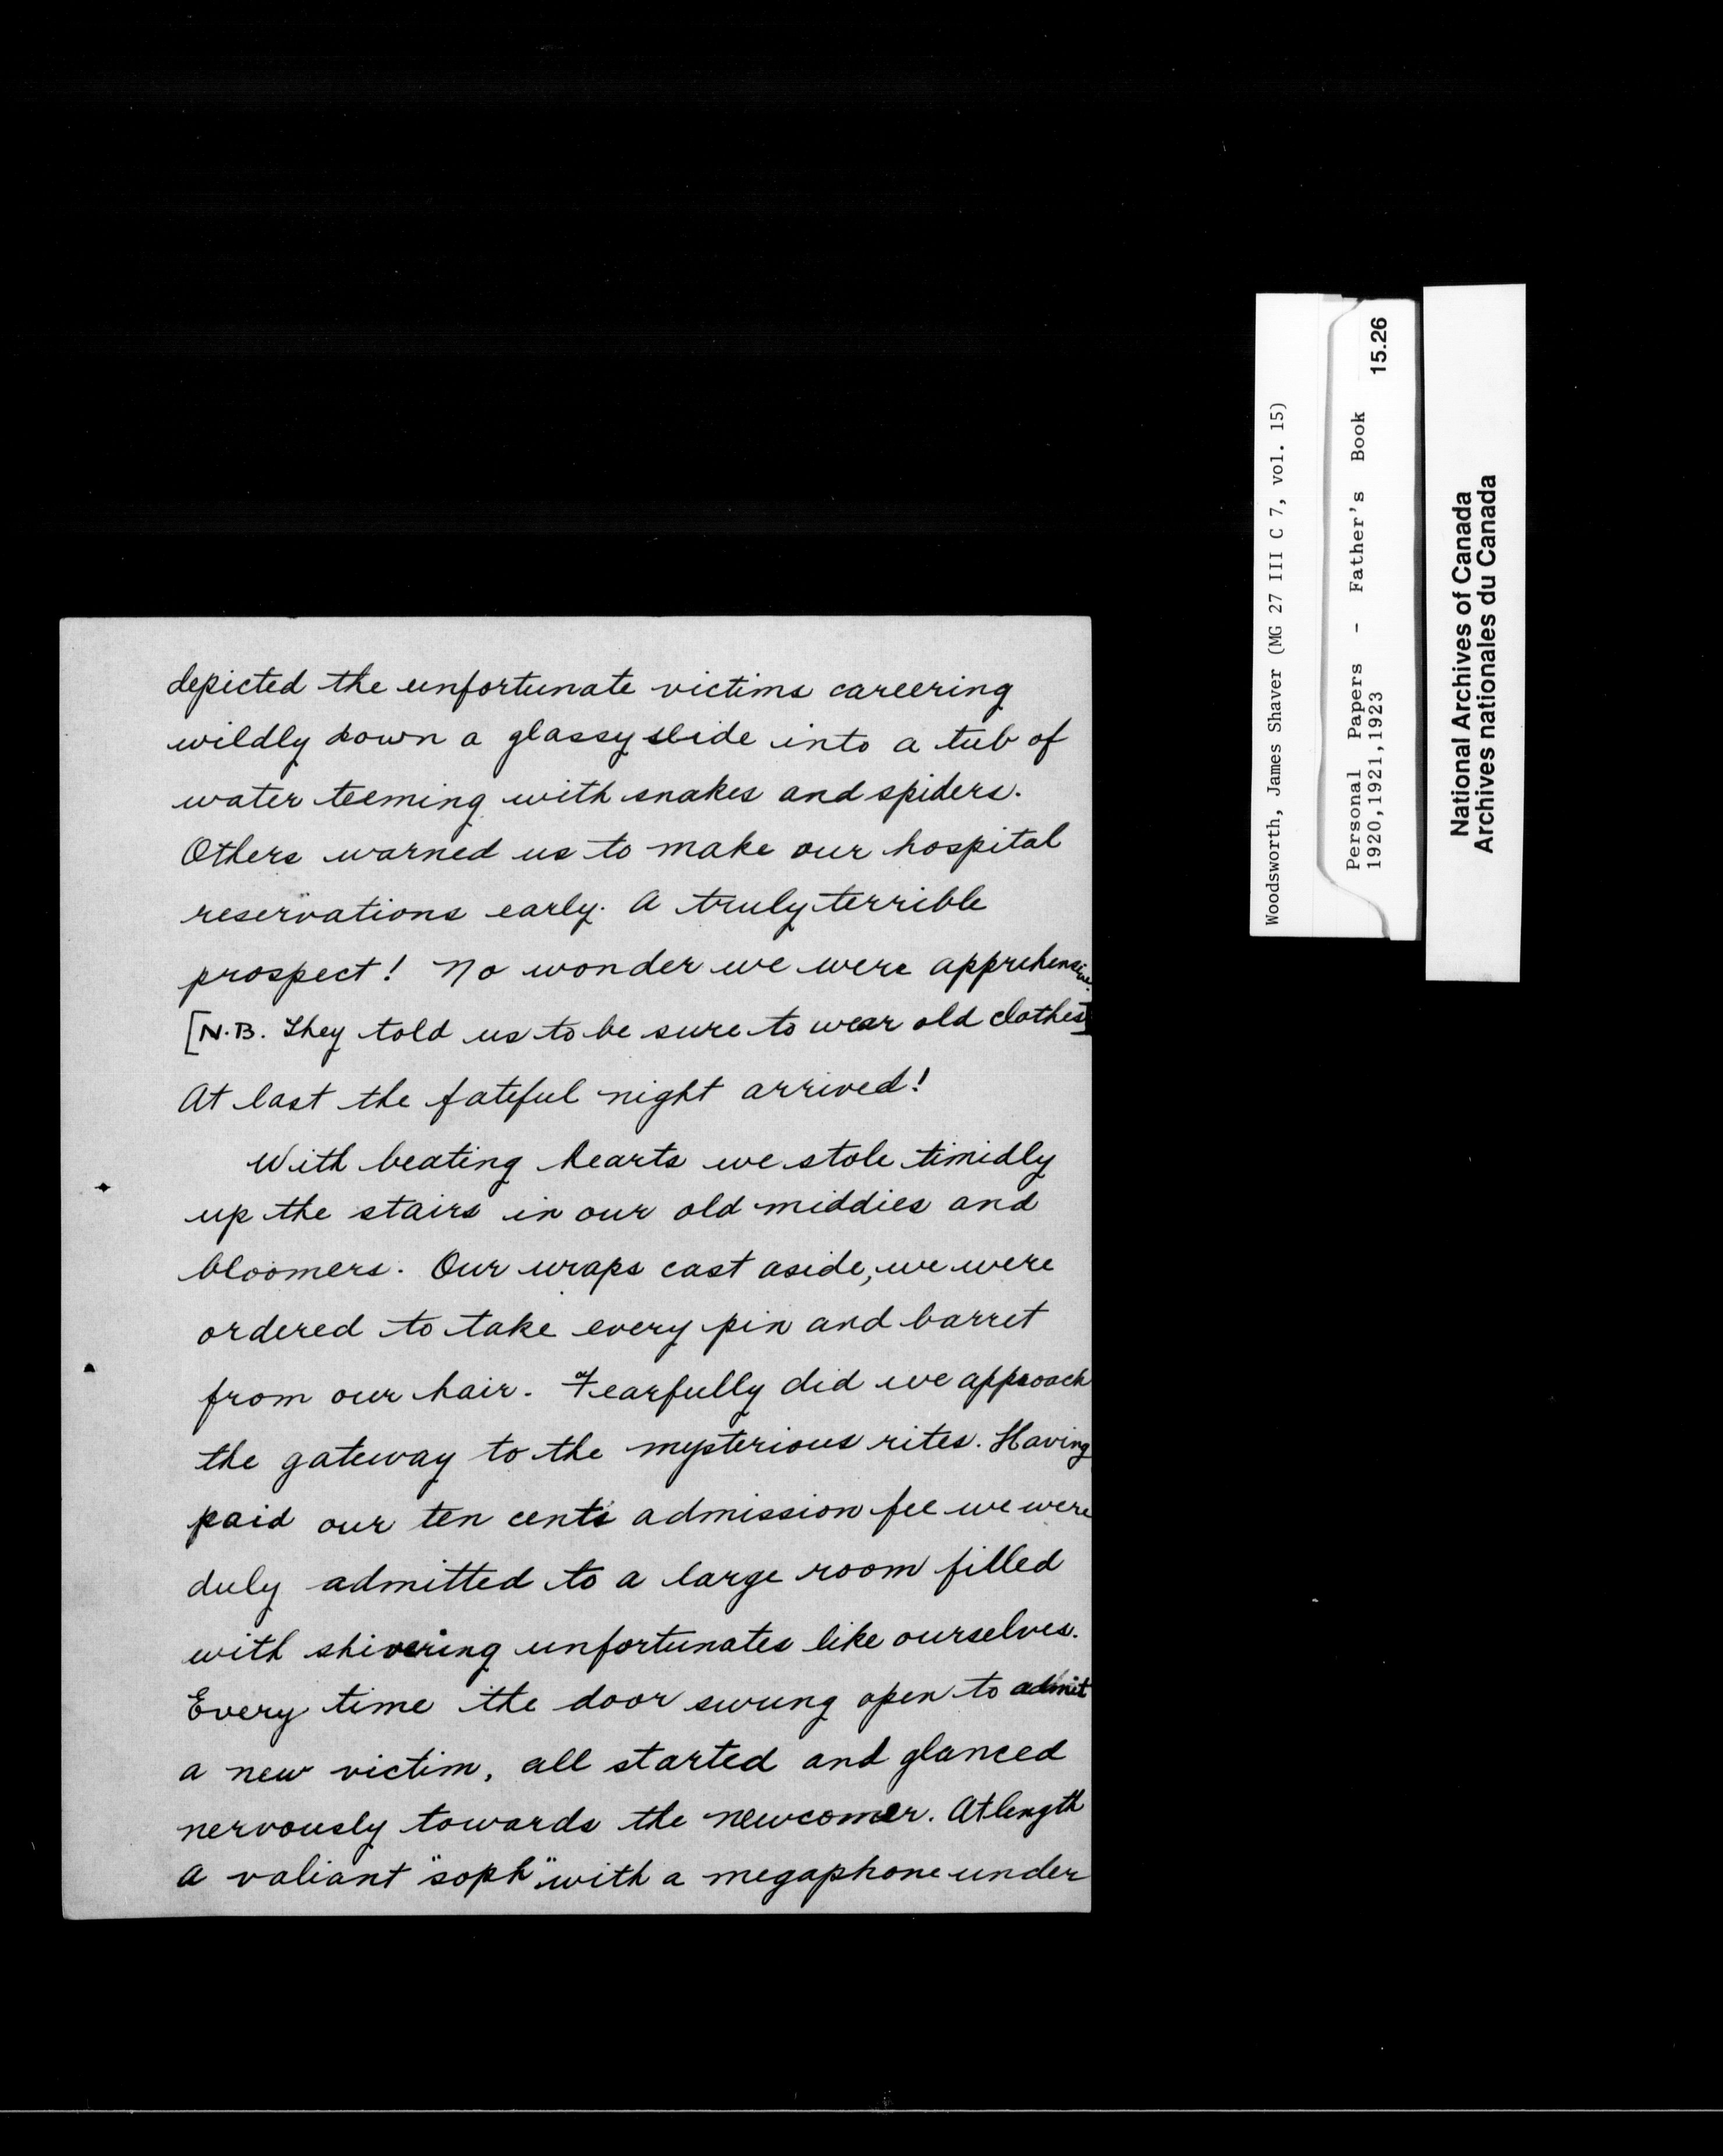 depicted the unfortunate victims careering
wildly down a glassy slide into a tub of
water teeming with snakes and spiders.
Others warned us to make our hospital
reservations early. A truly terrible
prospect! No wonder we were apprehensive.
[N.B. They told us to be sure to wear old clothes]
At last the fateful night arrived!
With beating hearts we stole timidly
up the stairs in our old middies and
bloomers. Our wraps cast aside, we were
ordered to take every pin and barret
from our hair. Fearfully did we approach
the gateway to the mysterious rites. Having
paid our ten cents admission fee we were
duly admitted to a large room filled
with shivering unfortunates like ourselves.
Every time the door swung open to admit
a new victim, all started and glanced
nervously towards the newcomer. At length
a valiant "soph" with a megaphone under
Woodsworth, James Shaver (MG 27 III C 7, vol. 15)
Personal Papers - Father's Book 15.26
1920,1921,1923
National Archives of Canada
Archives nationales du Canada